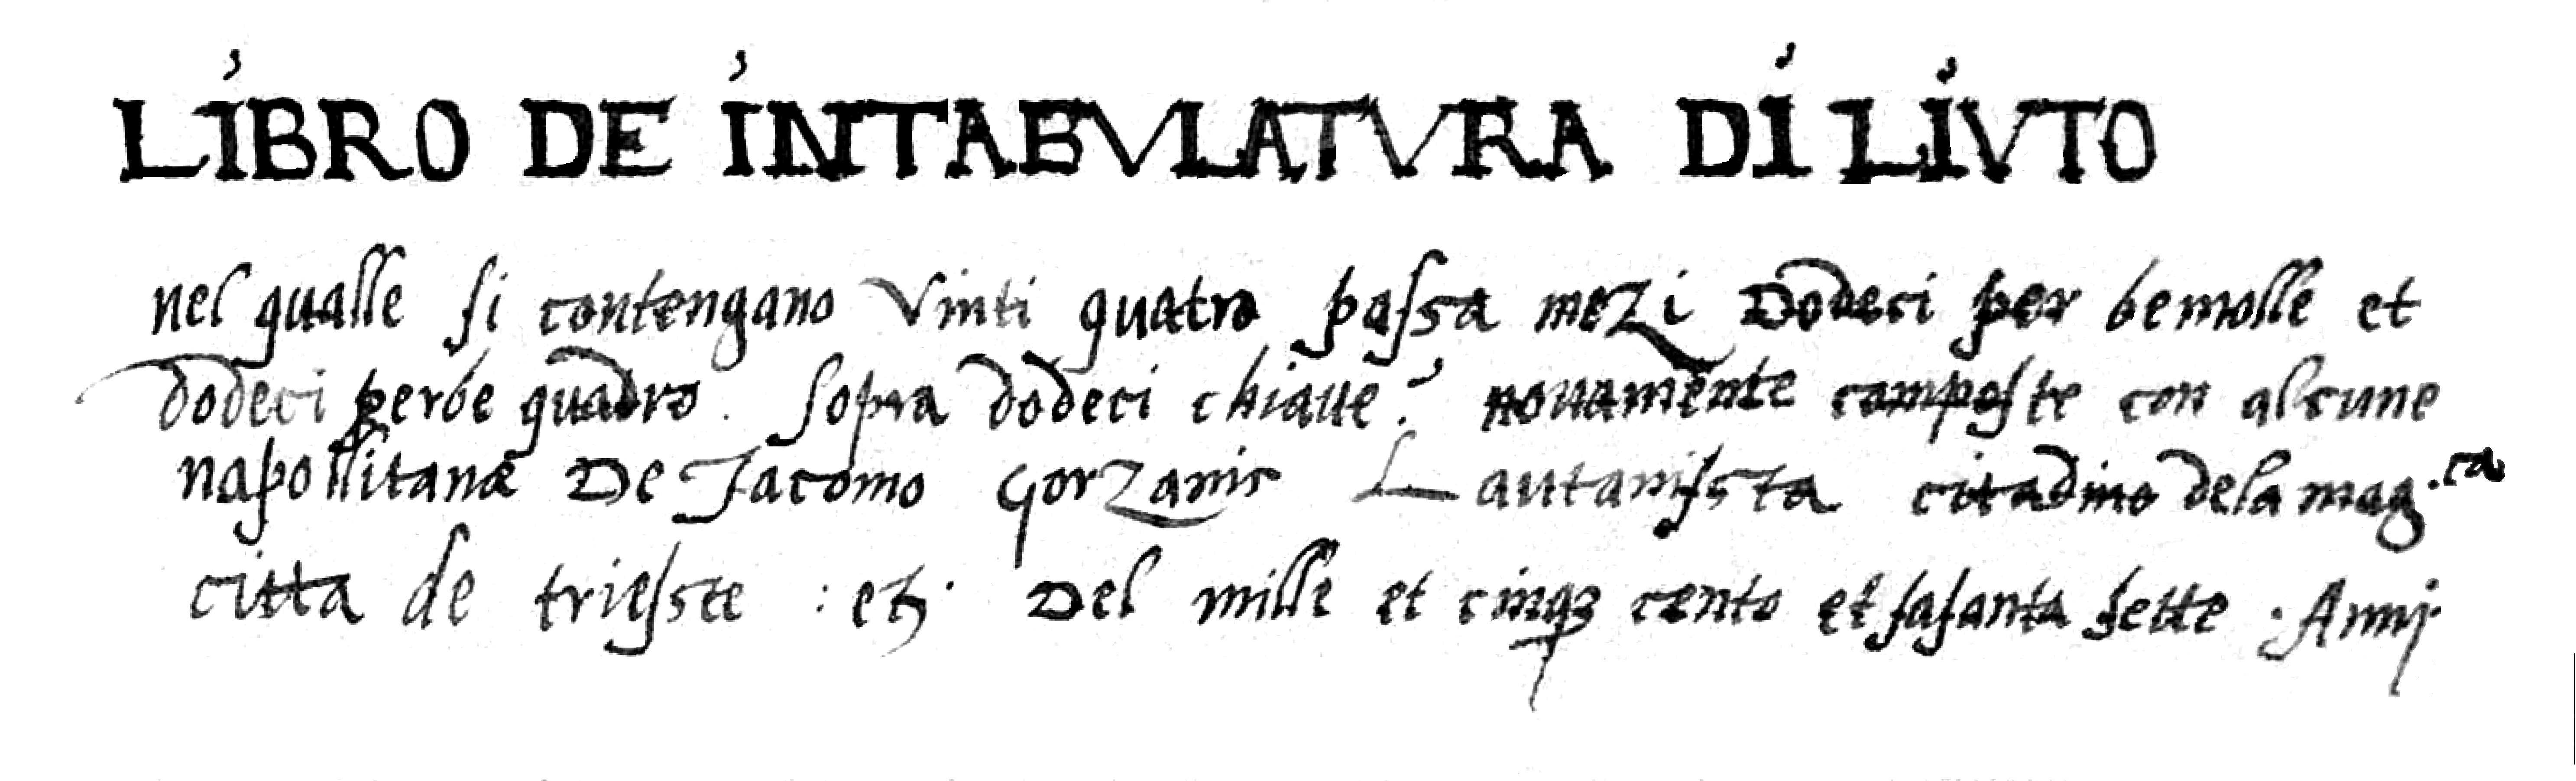 LIBRO DE INTABVLATVRA DI LIVTO
nel qualle si contengano Vinti quatro passa mezi Dodeci per bemolle et
dodeci perbe quadro. Sopra dodeci chiaue. novamente composte con alcune
napollitane De Jacomo gorzanis Lautanista citadino dela mag.ca
citta de trieste : et. Del mille et cinqz cento et sasanta sette . Annj.